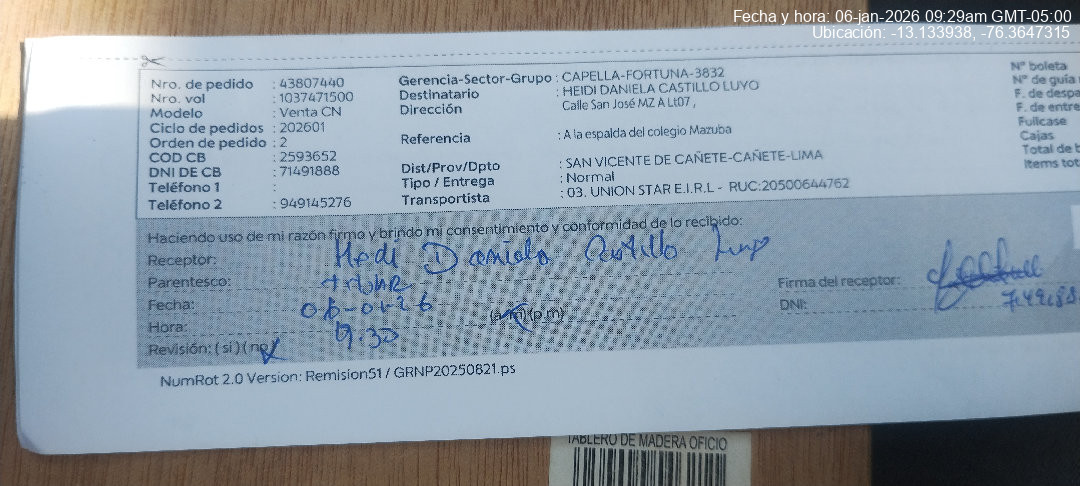 Fecha y hora: 06-jan-2026 09:29am GMT-05:00
Ubicación: -13.133938, -76.3647315
Nro. de pedido : 43807440
Nro. vol : 1037471500
Modelo : Venta CN
Ciclo de pedidos : 202601
Orden de pedido : 2
COD CB : 2593652
DNI DE CB : 71491888
Teléfono 1 :
Teléfono 2 : 949145276
Gerencia-Sector-Grupo : CAPELLA-FORTUNA-3832
Destinatario : HEIDI DANIELA CASTILLO LUYO
Dirección Calle San José MZ A Lt07 ,
Referencia : A la espalda del colegio Mazuba
Dist/Prov/Dpto : SAN VICENTE DE CAÑETE-CAÑETE-LIMA
Tipo / Entrega : Normal
Transportista : 03. UNION STAR E.I.R.L - RUC:20500644762
N° boleta
N° de guía
F. de despa
F. de entre
Fullcase
Cajas
Total de b
Items tot
Haciendo uso de mi razón firmo y brindo mi consentimiento y conformidad de lo recibido:
Receptor: Hedi Daniela Castillo Luyo
Parentesco: titular
Fecha: 06-01-26
Hora: 9:30 (a.m)(p.m)
Revisión: (si) (no)
Firma del receptor:
DNI:
NumRot 2.0 Version: Remision51 / GRNP20250821.ps
TABLERO DE MADERA OFICIO